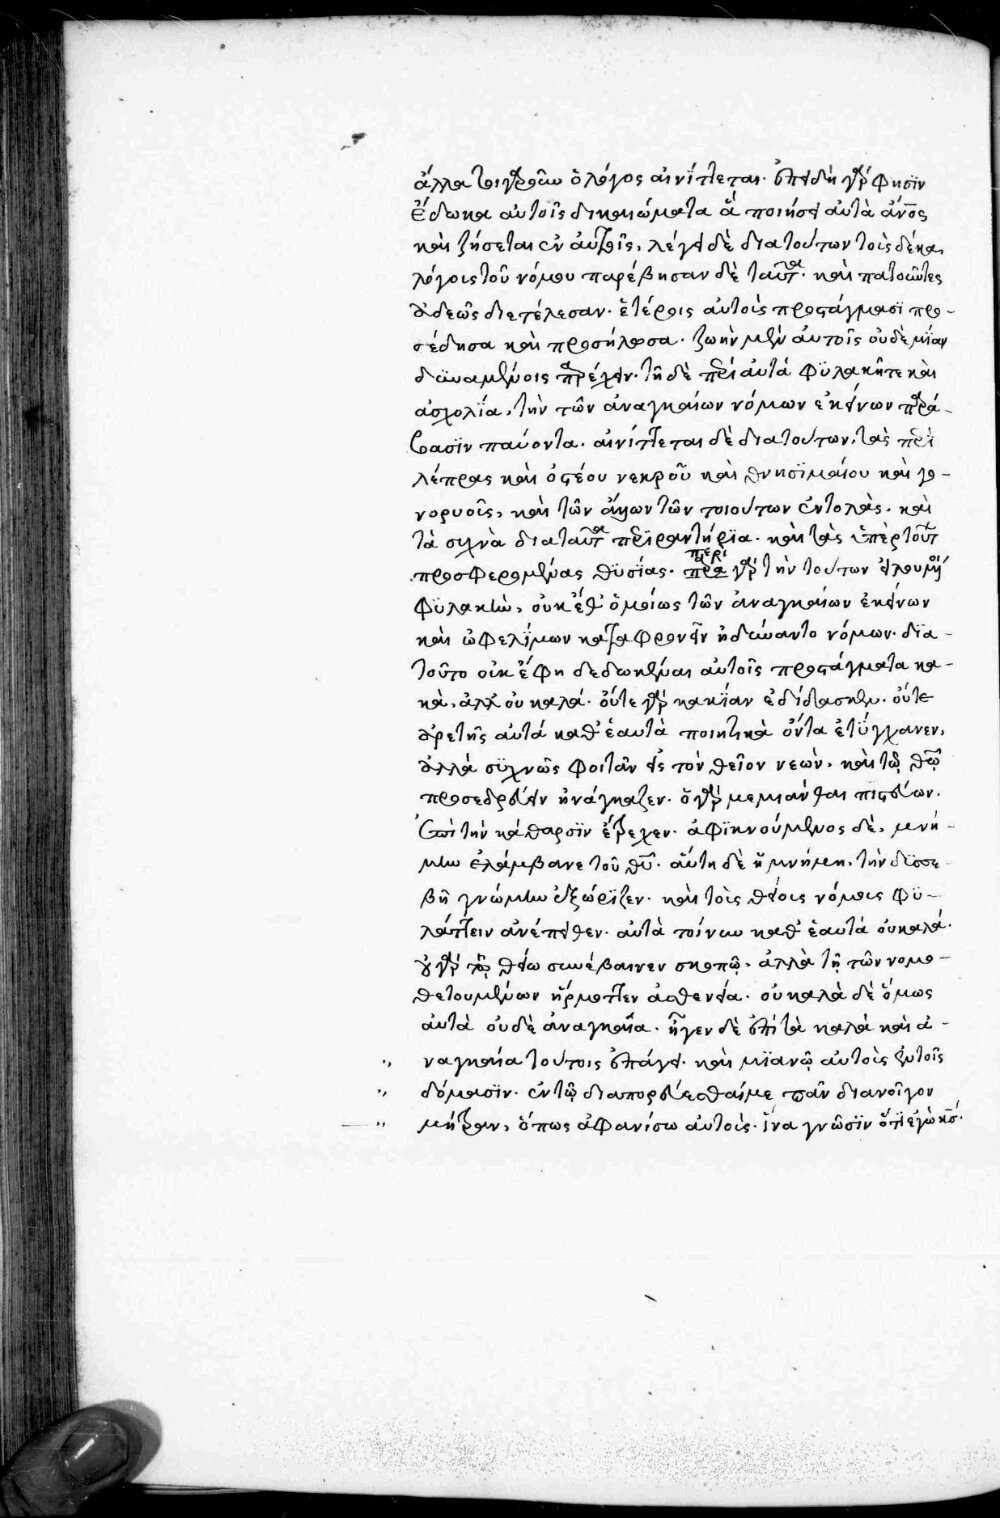 ἄλλα τοιγαροῦν ὁ λόγος αἰνίττεται. ἐπειδὴ γάρ φησϊν
ἔδωκα αὐτοῖς δικαιώματα ἃ ποιήσει αὐτὰ ἄνος
καὶ ζήσεται ἐν αὐτοῖς, λέγει δὲ διατούτων τοῖς δέκα
λόγοις τοῦ νόμου παρέβησαν δὲ ταῦτα. καὶ πατοῦντες
ἀδεῶς διετέλεσαν. ἑτέροις αὐτοὺς προστάγμασϊ προ-
σέδησα καὶ προσήλωσα. ζωὴν μὲν αὐτοῖς οὐδὲ μίαν
δυναμένοις παρέχειν. τῇ δὲ περὶ αὐτὰ φϋλακῇ τε καὶ
ἀσχολΐα, τὴν τῶν ἀναγκαίων νόμων ἐκείνων παρά-
βασϊν παύοντα. αἰνίττεται δὲ διατούτων, τὰς περὶ
λέπρας καὶ ὀστέου νεκροῦ καὶ θνησϊμαίου καὶ γο-
νορυοῦς, καὶ τῶν ἄλλων τῶν τοιούτων ἐντολὰς. καὶ
τὰ συχνὰ διαταῦτα περιραντήρϊα. καὶ τὰς ὑπὲρ τούτων
προσφερομένας θϋσΐας. περὶ παρὰ γὰρ τὴν τούτων εἰλουμένοι
φϋλακὴν, οὐκ ἔθ' ὁμοίως τῶν ἀναγκαίων ἐκείνων
καὶ ὠφελΐμων καταφρονεῖν ἠδύναντο νόμων. δϊα-
τοῦτο οὐκ ἔφη δεδωκέναι αὐτοῖς προστάγματα κα-
κὰ, ἀλλ' οὐ καλά. οὔτε γὰρ κακΐαν ἐδίδασκεν. οὔτε
ἀρετῆς αὐτά καθ' ἑαυτὰ ποιητικὰ ὄντα ἐτΰγχανεν,
ἀλλὰ σϋχνῶς φοιτᾶν εἰς τὸν θεῖον νεὼν, καὶ τῷ θῶ
προσεδρεύειν ἠνάγκαζεν. ὁ γὰρ μεμιάνθαι πιστεύων,
ἐπὶ τὴν κάθαρσϊν ἔτρεχεν. ἀφικνούμενος δὲ, μνή-
μην ἐλάμβανε τοῦ θῦ. αὕτη δὲ ἡ μνήμη, τὴν δϋσσε-
βῆ γνώμην ἐξώρϊζεν. καὶ τοῖς θείοις νόμοις φϋ-
λάττειν ἀνέπειθεν. αὐτὰ τοίνυν καθ' ἑαυτά οὐ καλά.
οὐ γὰρ τῷ θείω συνέβαινεν σκοπῷ. ἀλλὰ τῇ τῶν νομο-
θετουμένων ἥρμοττεν ἀσθενεία. οὐ καλὰ δὲ ὅμως
αὐτὰ οὐδὲ ἀναγκαῖα. ἦγεν δὲ ἐπὶ τὰ καλὰ καὶ ἀ-
,, ναγκαῖα τούτοις ἐπάγει. καὶ μϊανῶ αὐτοὺς ἐν τοῖς
,, δόμασϊν. ἐν τῷ διαπορεύεσθαί με πᾶν διανοῖγον
,, μήτραν, ὅπως ἀφανίσω αὐτούς. ἵνα γνῶσϊν ὅτι ἐγὼ κς.